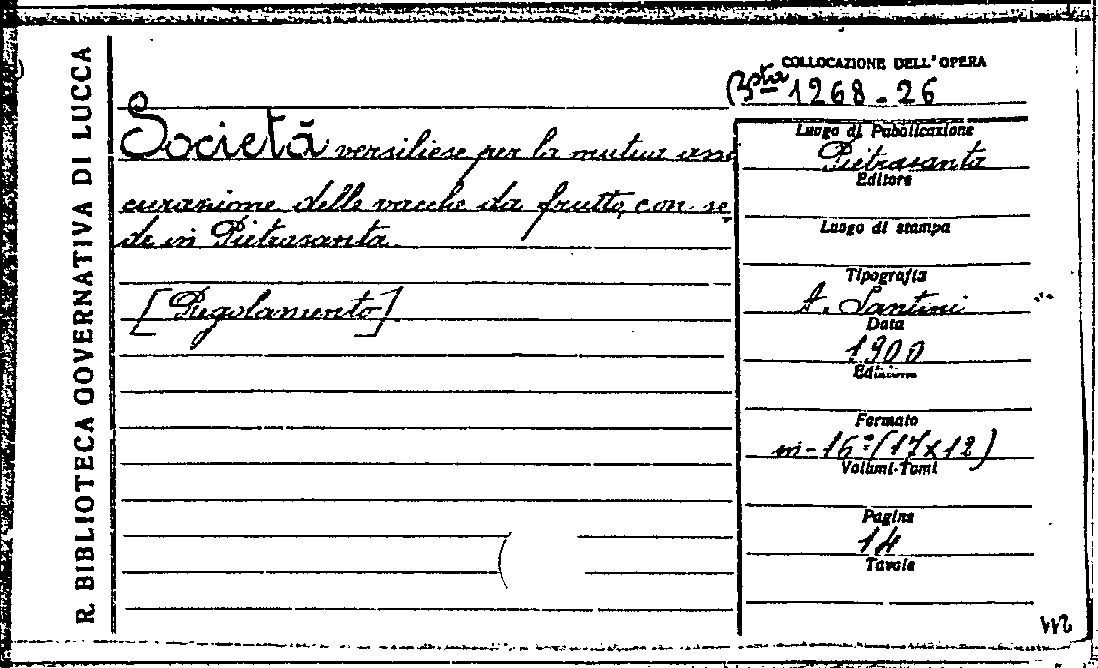 R. BIBLIOTECA GOVERNATIVA DI LUCCA
COLLOCAZIONE DELL'OPERA
Bsta 1268-26
Società versiliese per la mutua assi
curazione delle vacche da frutto, con se
de in Pietrasanta.
[Regolamento]
Luogo di Pubblicazione
Pietrasanta
Editore
Luogo di stampa
Tipografia
A. Santini
Data
1900
Edizione
Formato
in-16º (17x12)
Volumi-Tomi
Pagine
14
Tavole